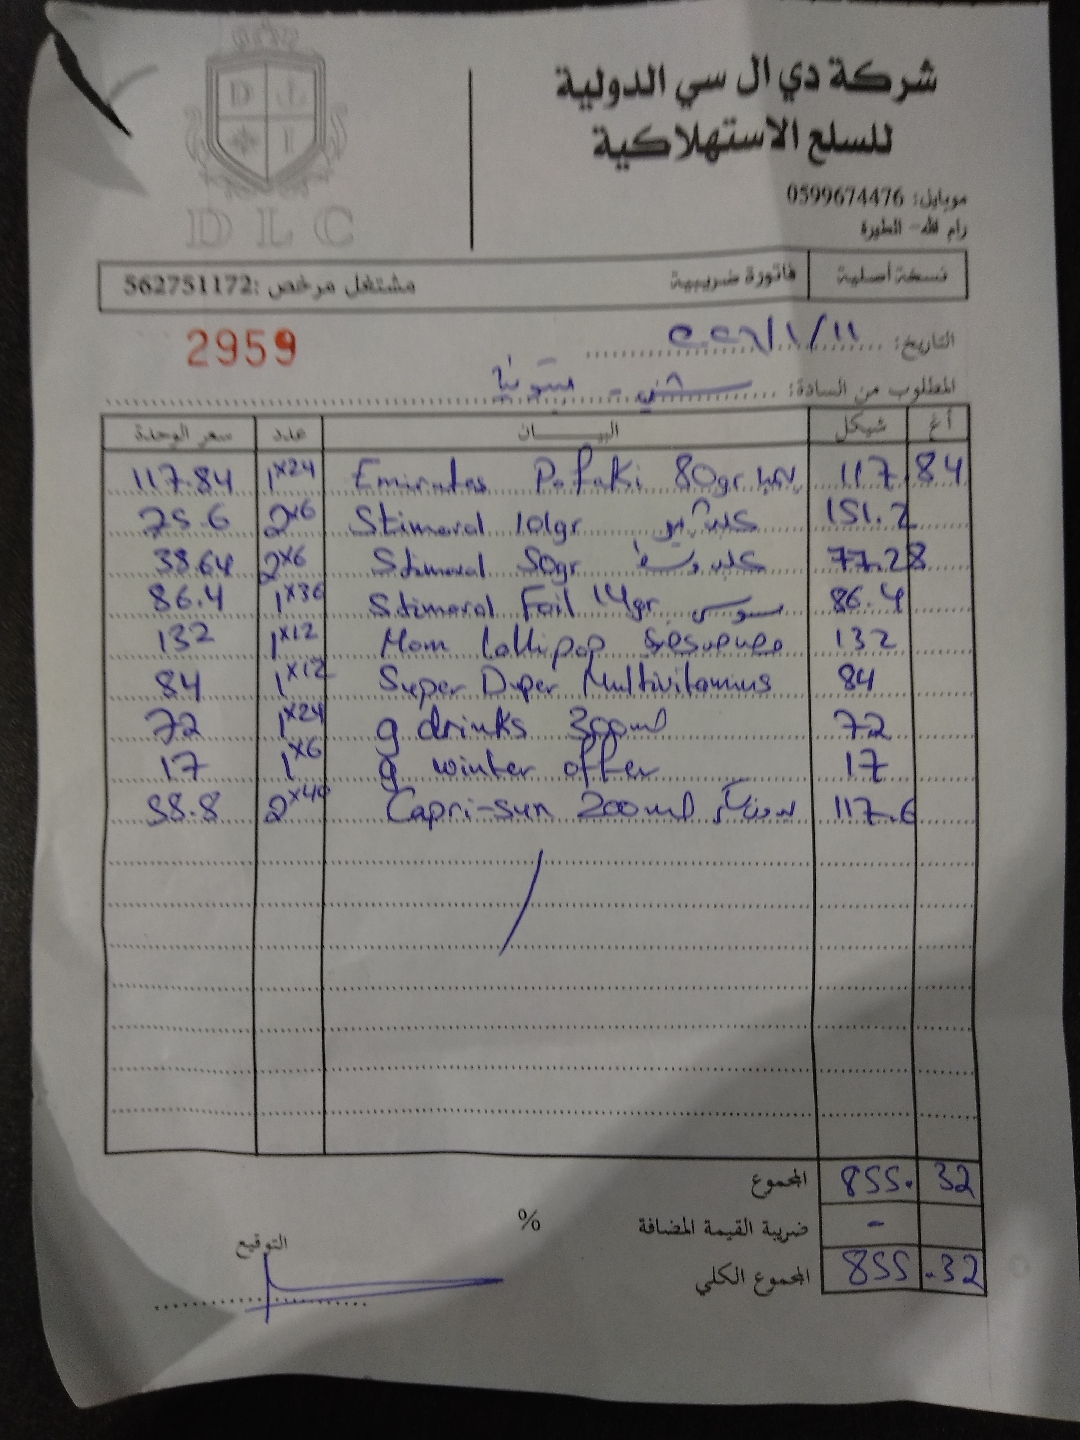 D L
I
D L C
شركة دي ال سي الدولية
للسلع الاستهلاكية
موبايل: 0599674476
رام الله- الطيرة
نسخة أصلية فاتورة ضريبية مشتغل مرخص :562751172
2959
التاريخ:
المطلوب من السادة:
أغ شيكل البيـــــان عدد سعر الوحدة
117.84 1×24 Emirates Pofaki 80gr 117 84
75.6 2×6 Stimorol 101gr 151.2
38.64 2×6 Stimorol 50gr 77.28
86.4 1×36 Stimorol Foil 14gr 86.4
132 1×12 Mom Lollipop 132
84 1×12 Super Duper Multivitamins 84
72 1×24 g drinks 300ml 72
17 1×6 g winter offer 17
58.8 2×40 Capri-sun 200ml 117.6
المجموع 855. 32
ضريبة القيمة المضافة % -
المجموع الكلي 855 .32
التوقيع